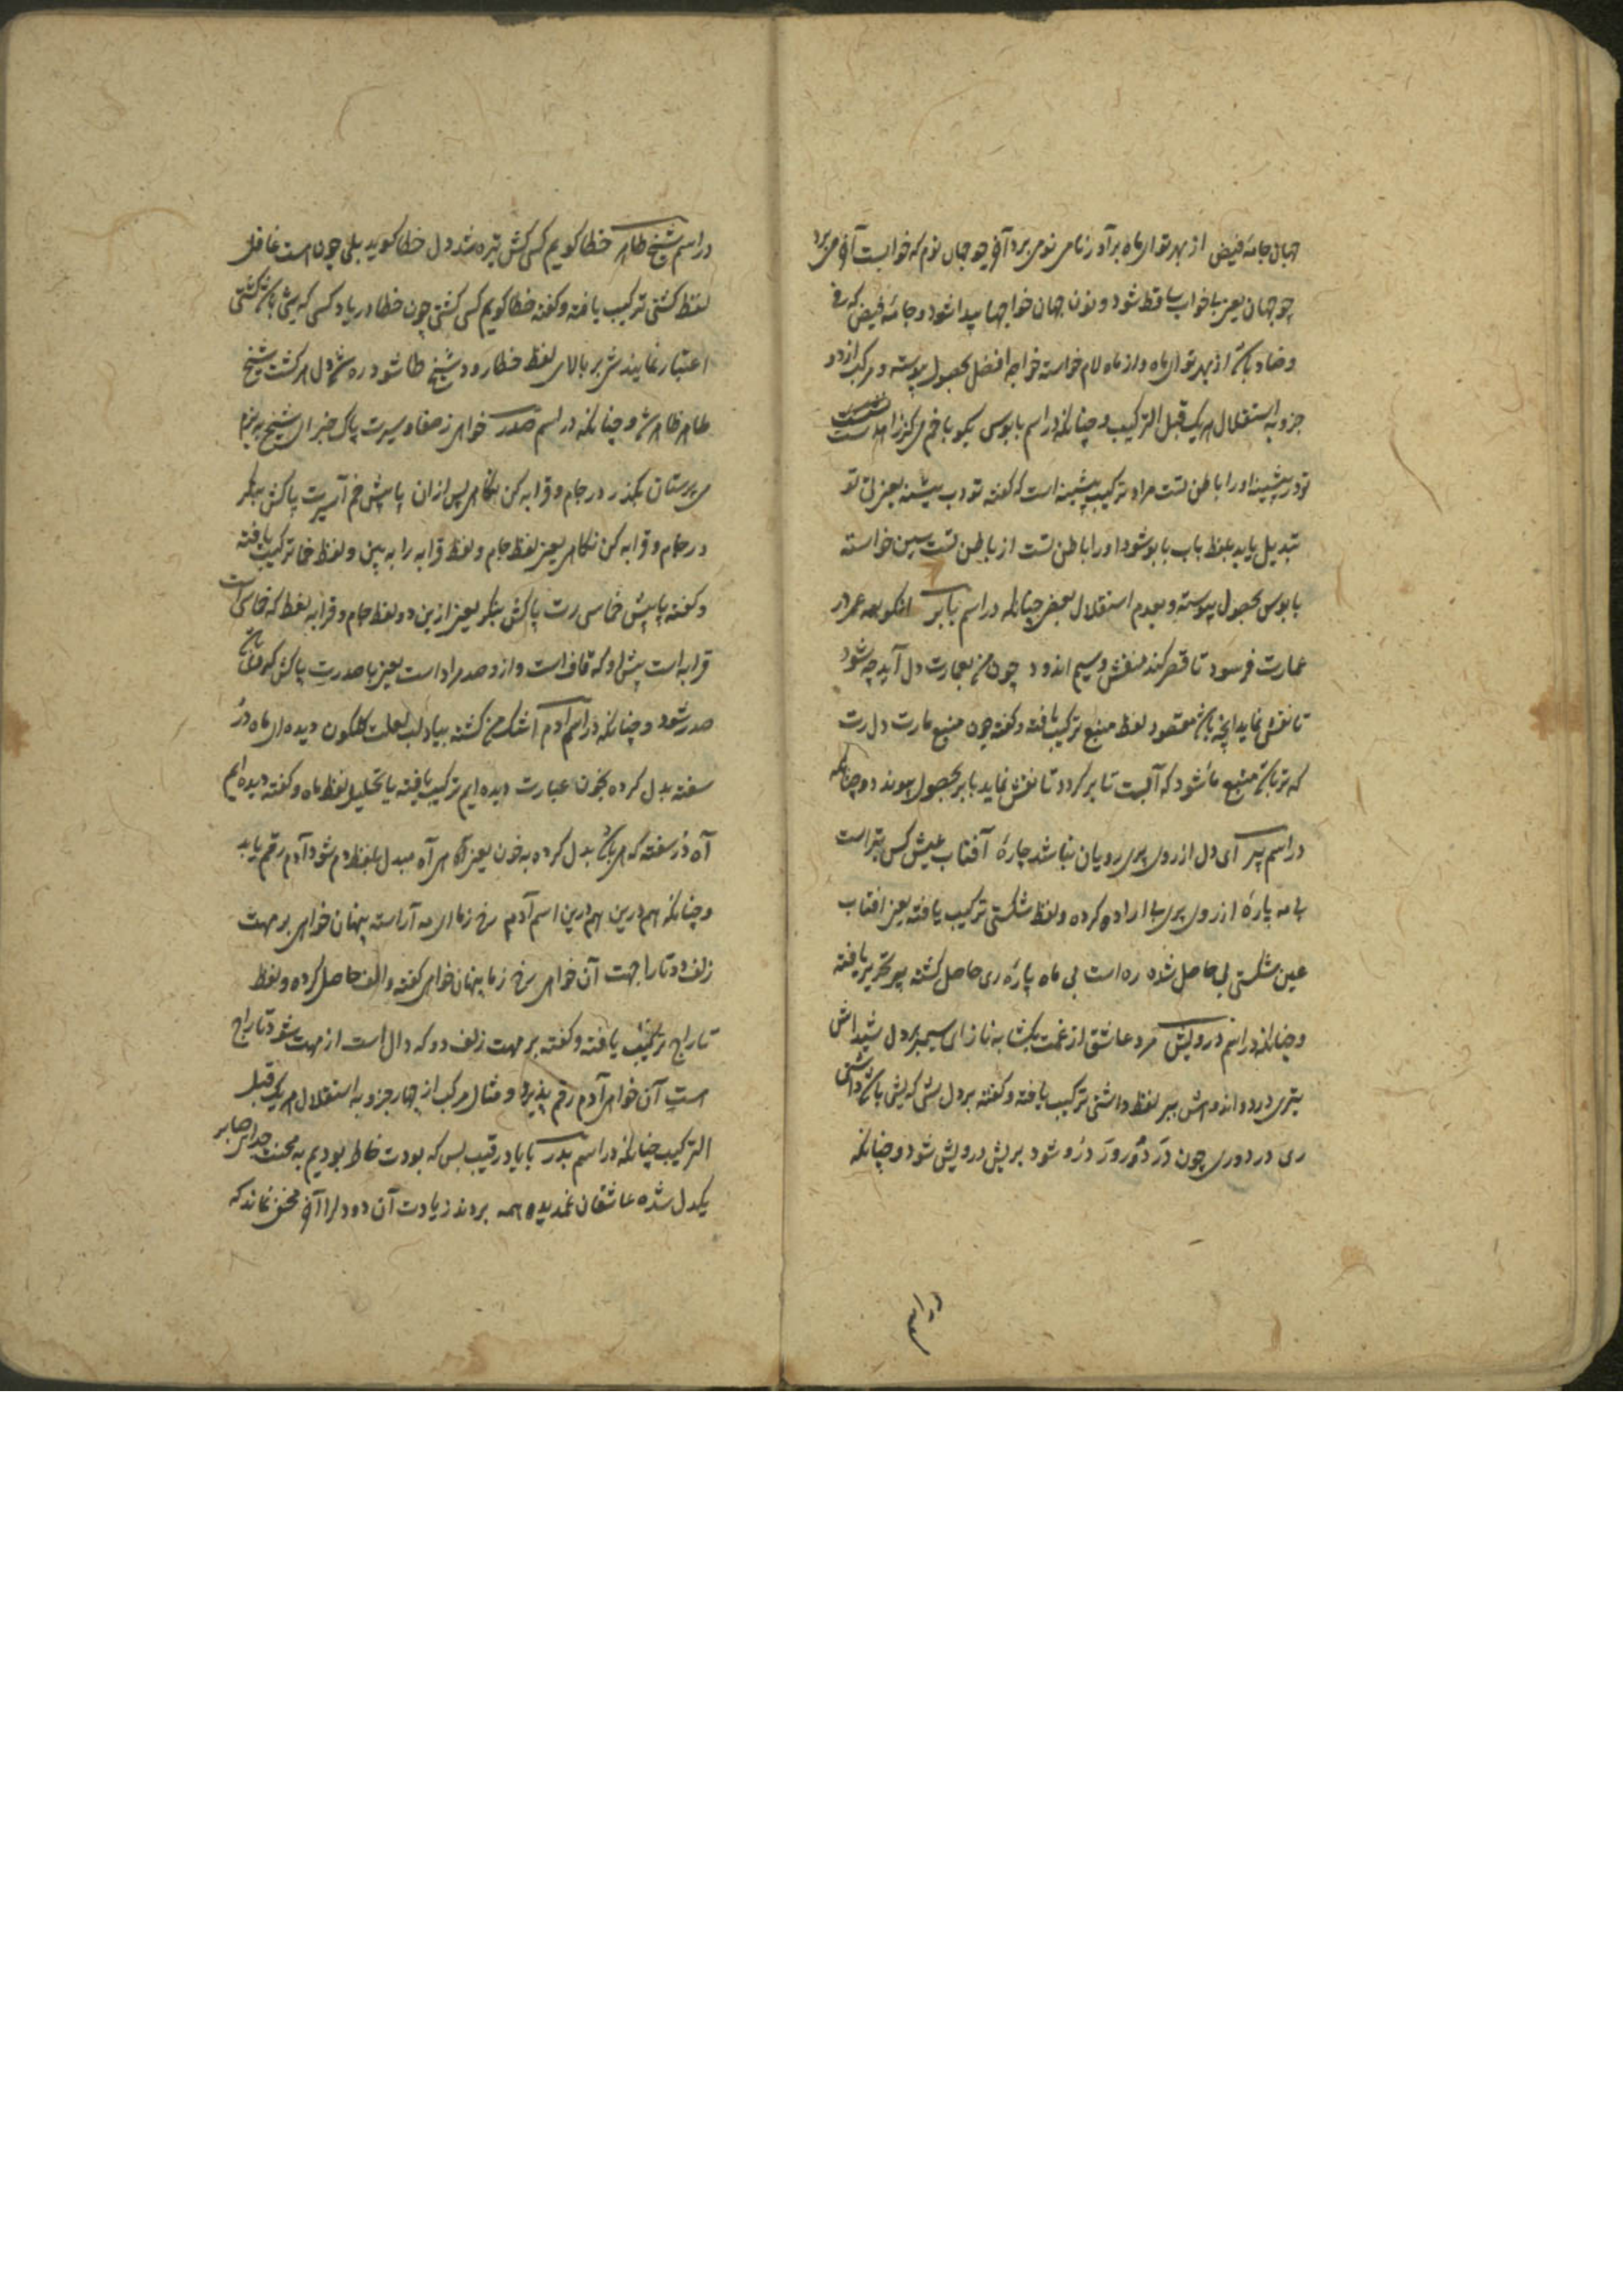 جهان جامهٔ فیض از بهر تو ای ماه برآورد ز نامی نومی برد آفر چو جهان نوم که خوابست آفر می برد
چو جهان یعنی با خواب ساقط شود و نون جهان خواجها پیدا شود و جامهٔ فیض که ف
و ضاد باشد از بهر تو ای ماه و از ماه لام خواسته خواجه افضل بحصول پیوسته و مرکب از دو
جزو به استقلال هر یک قبل الترکیب و چنانکه در اسم بابوس بگو با خم می کز را
تو در پیشینه او را باطن تست مراد ترکیب پیشینه است که گفته تو دب پیشینه یعنی تو
تبدیل یابد بلفظ باب بابو شود او را باطن تست از باطن تست سین خواسته
بابوس بحصول پیوسته و بعدم استقلال بعضی چنانکه در اسم بابر آنکو همه عمر در
عمارت فرسود تا قصر کند نقش و سیم اندود چون منبع عمارت دل آید چه شود
تا نقش نماید آنچه باشد مقصود لفظ منبع ترکیب یافته و گفته چون منبع مارت دل رت
که تر باشد منبع ما شود که آبست تا بر گردد تا نقش نماید بابر بحصول پیوندد و چنانکه
در اسم پیر ای دل از روی پری رویان نباشد چارهٔ آفتاب عیش کس بتر است
بی مه پارهٔ از روی پری با اراده کرده و لفظ شکستی ترکیب یافته یعنی افتاب
عین شکستی بی حاصل شده ره است بی ماه پارهٔ ری حاصل گشته پیر تحریر یافته
و چنانکه در اسم درویش مرد عاشق از غمت بکشا به ناز ای سیمبر دل شیداش
بتری درد و اندوهش ببر لفظ داشتی ترکیب یافته و گفته بر دل شی که یش باشد داشتی
ری در دوری چون در دو رور درو شود بریش درویش شود و چنانکه
در اسم
در اسم شیخ طاهر خطا گویم کسی کش تیره شد دل خطا گوید بلی چون است غافل
لفظ کشتی ترکیب یافته و گفته خطا گویم کسی کشتی چون خطا در یاد کسی که یشی باشد کشتی
اعتبار نمایند ش بر بالای لفظ خطا رود شیخ طا شود ره شد دل هر گشت شیخ
طاهر ظاهر شد و چنانکه در اسم صدر خواهی ز صفا و سیرت پاک خبر ای شیخ به بزم
می پرستان بگذر در جام و قرابه کن نگاهی پس از آن پا پیش خم آسیرت پاکش بنگر
در جام و قرابه کن نگاهی یعنی لفظ جام و لفظ قرابه را به بین و لفظ خما ترکیب یافته
و گفته پا پیش خماسی رت پاکش بنگر یعنی ازین دو لفظ جام و قرابه لفظ که خماسی است
قرابه است پیش او که قاف است و ازو صد مراد است یعنی با صد رت پاکش که باشد
صدر شود و چنانکه در اسم آدم اشک من گشته بیاد لب لعلت گلگون دیده ای ماه در
سفته بدل کرده بخون عبارت دیده ایم ترکیب یافته با تحلیل لفظ ماه و گفته دیده ایم
آه در سفته که هی باشد بدل کرده به خون یعنی های آه مبدل بلفظ دم شود آدم رقم یابد
و چنانکه هم درین هم درین اسم آدم رخ ز ما ای مه آراسته پنهان خواهی بر مهت
زلف دو تا را جهت آن خواهی رخ ز ما پنهان خواهی گفته و الف حاصل کرده و لفظ
تاراج ترکیب یافته و گفته بر مهت زلف دو که دال است از مهت شود تاراج
است آن خواهی آدم رقم پذیرد و مثال مرکب از چهار جزو به استقلال هر یک قبل
الترکیب چنانکه در اسم بدر بابا درقیب بس که بودت خاطر بودیم به محنت جدای صابر
یکدل شده عاشقان غمدیده همه بردند زیادت آن دو دلرا آفر مخفی نماند که